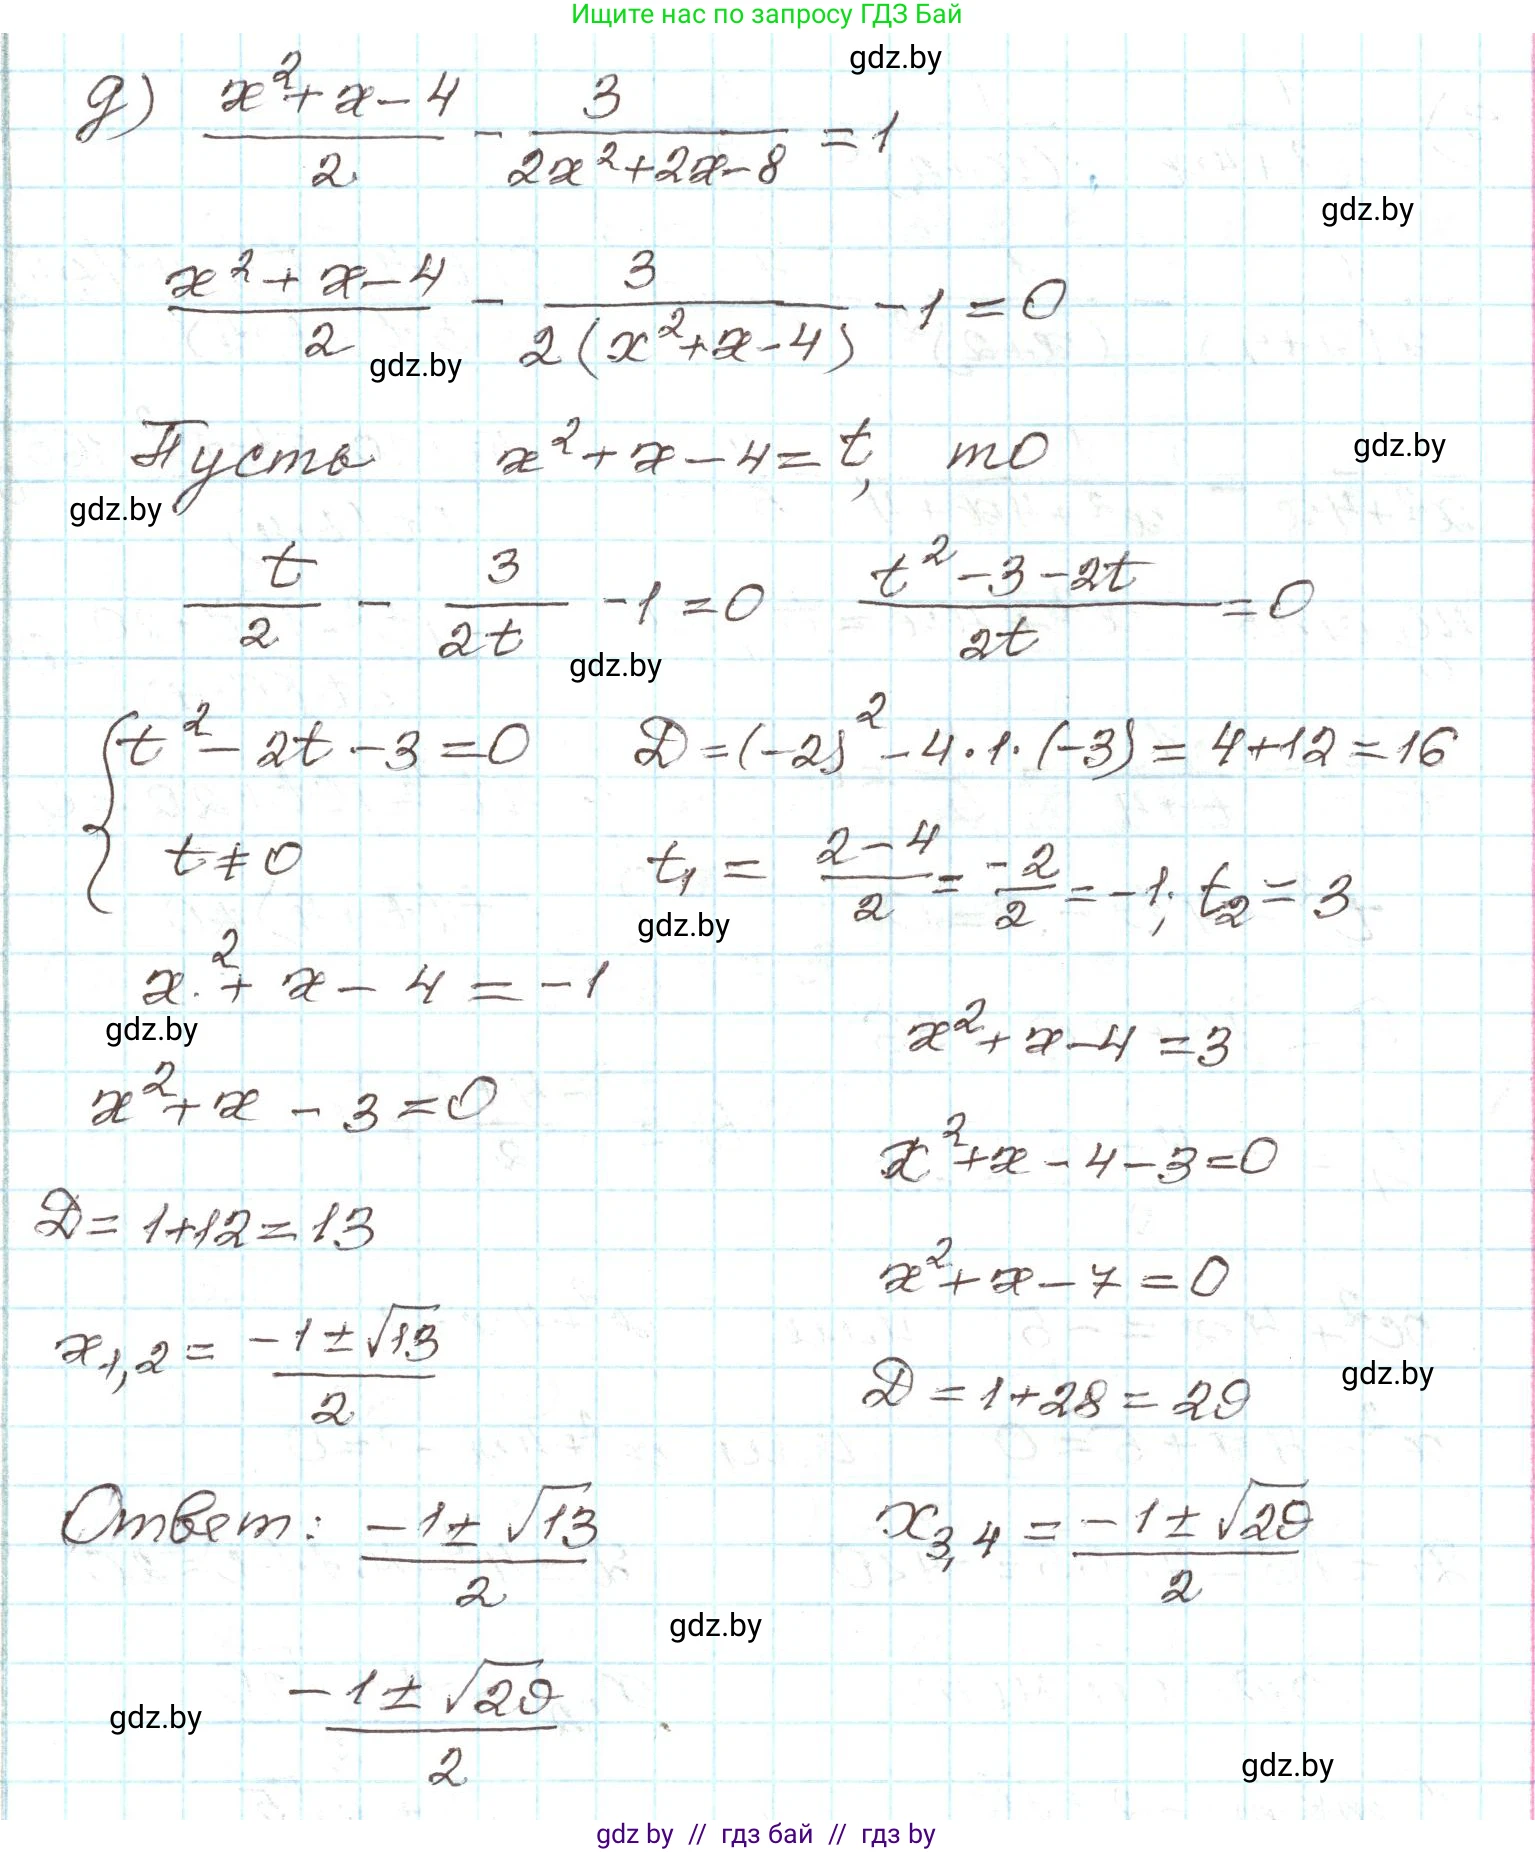 Ищите нас по запросу ГДЗ Бай
gdz.by
д) (x²+x-4)/2 - 3/(2x²+2x-8) = 1
gdz.by
(x²+x-4)/2 - 3/(2(x²+x-4)) - 1 = 0
gdz.by
Пусть x²+x-4=t, то
gdz.by
gdz.by
t/2 - 3/(2t) - 1 = 0 (t²-3-2t)/(2t) = 0
gdz.by
{ t²-2t-3=0 D=(-2)²-4·1·(-3)=4+12=16
t≠0 t₁ = (2-4)/2 = -2/2 = -1; t₂ = 3
gdz.by
x²+x-4=-1
gdz.by
x²+x-4=3
x²+x-3=0
x²+x-4-3=0
D=1+12=13
x²+x-7=0
x₁,₂ = (-1±√13)/2
gdz.by
D=1+28=29
Ответ: (-1±√13)/2
x₃,₄ = (-1±√29)/2
gdz.by
(-1±√29)/2
gdz.by
gdz.by
gdz by // гдз бай // гдз by